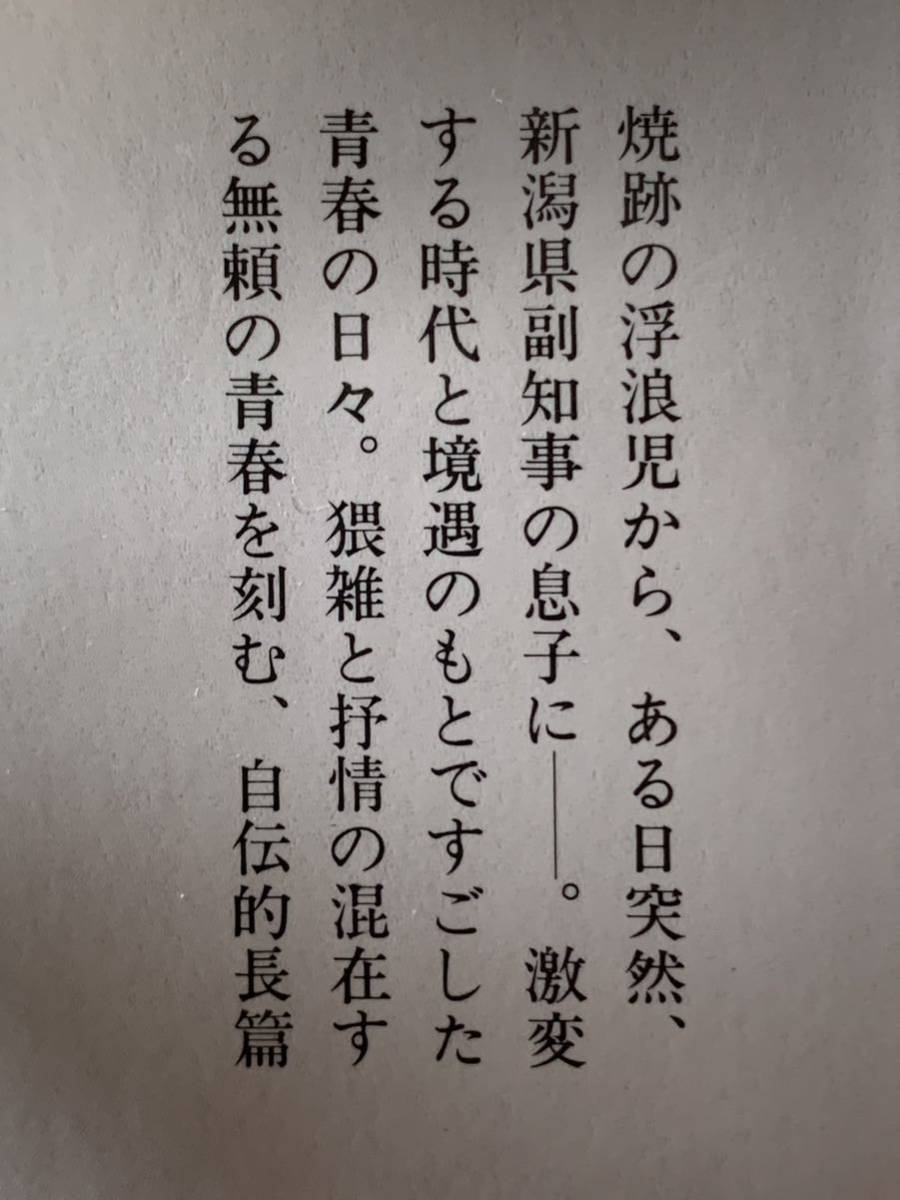 焼跡の浮浪児から、ある日突然、
新潟県副知事の息子に――。激変
する時代と境遇のもとですごした
青春の日々。猥雑と抒情の混在す
る無頼の青春を刻む、自伝的長篇